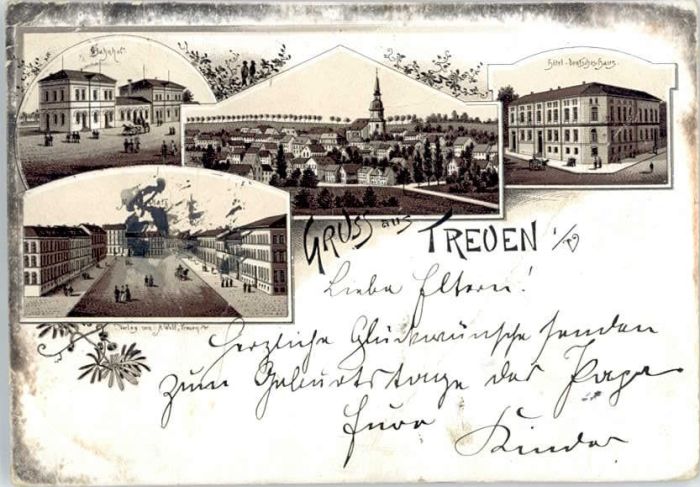 Bahnhof
Hôtel-Deutsches Haus.
GRUSS aus TREUEN i/V
Verlag von A. Wolf, Treuen i/V
Liebe Eltern!
Herzliche Glückwünsche senden
zum Geburtstage des Papa
Eure
Kinder